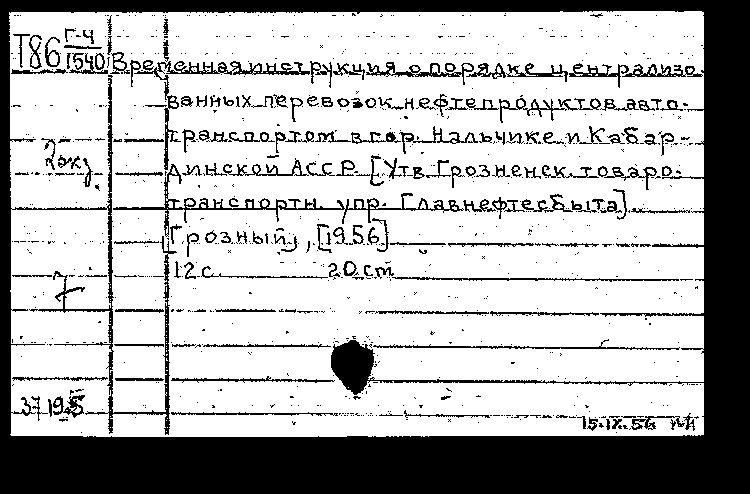 Т86 Г-4
1540
Временная инструкция о порядке централизо-
ванных перевозок нефтепродуктов авто-
транспортом в гор. Нальчике и Кабар-
2 экз.
динской АССР. [Утв. Грозненск. товаро-
транспортн. упр. Главнефтесбыта].
[Грозный], [1956]
12 с. 20 см
7
15.IX.56